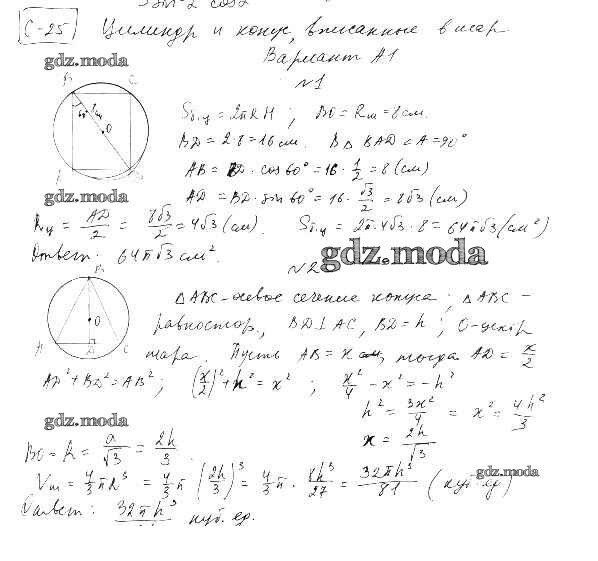 С-25 Цилиндр и конус, вписанные в шар.
gdz.moda
Вариант А1
№1
B C
60° 8см O
A D
Sб.ц = 2πRH ; BO = Rш = 8 см.
BD = 2·8 = 16 см. В △ BAD ∠A = 90°
AB = BD · cos 60° = 16 · 1/2 = 8 (см)
gdz.moda
AD = BD · sin 60° = 16 · √3/2 = 8√3 (см)
Rц = AD/2 = 8√3/2 = 4√3 (см). Sб.ц = 2π · 4√3 · 8 = 64π√3 (см²)
Ответ: 64π√3 см².
gdz.moda
№2
B
O
A D C
△ABC - осевое сечение конуса ; △ABC -
равностор., BD⊥AC, BD = h ; O - центр
шара. Пусть AB = x см, тогда AD = x/2
AD² + BD² = AB² ; (x/2)² + h² = x² ; x²/4 - x² = -h²
h² = 3x²/4 = x² = 4h²/3
gdz.moda
x = 2h/√3
BO = R = a/√3 = 2h/3 .
Vш = 4/3 πR³ = 4/3 π (2h/3)³ = 4/3 π · 8h³/27 = 32πh³/81 (куб. ед)
gdz.moda
Ответ: 32πh³ куб. ед.